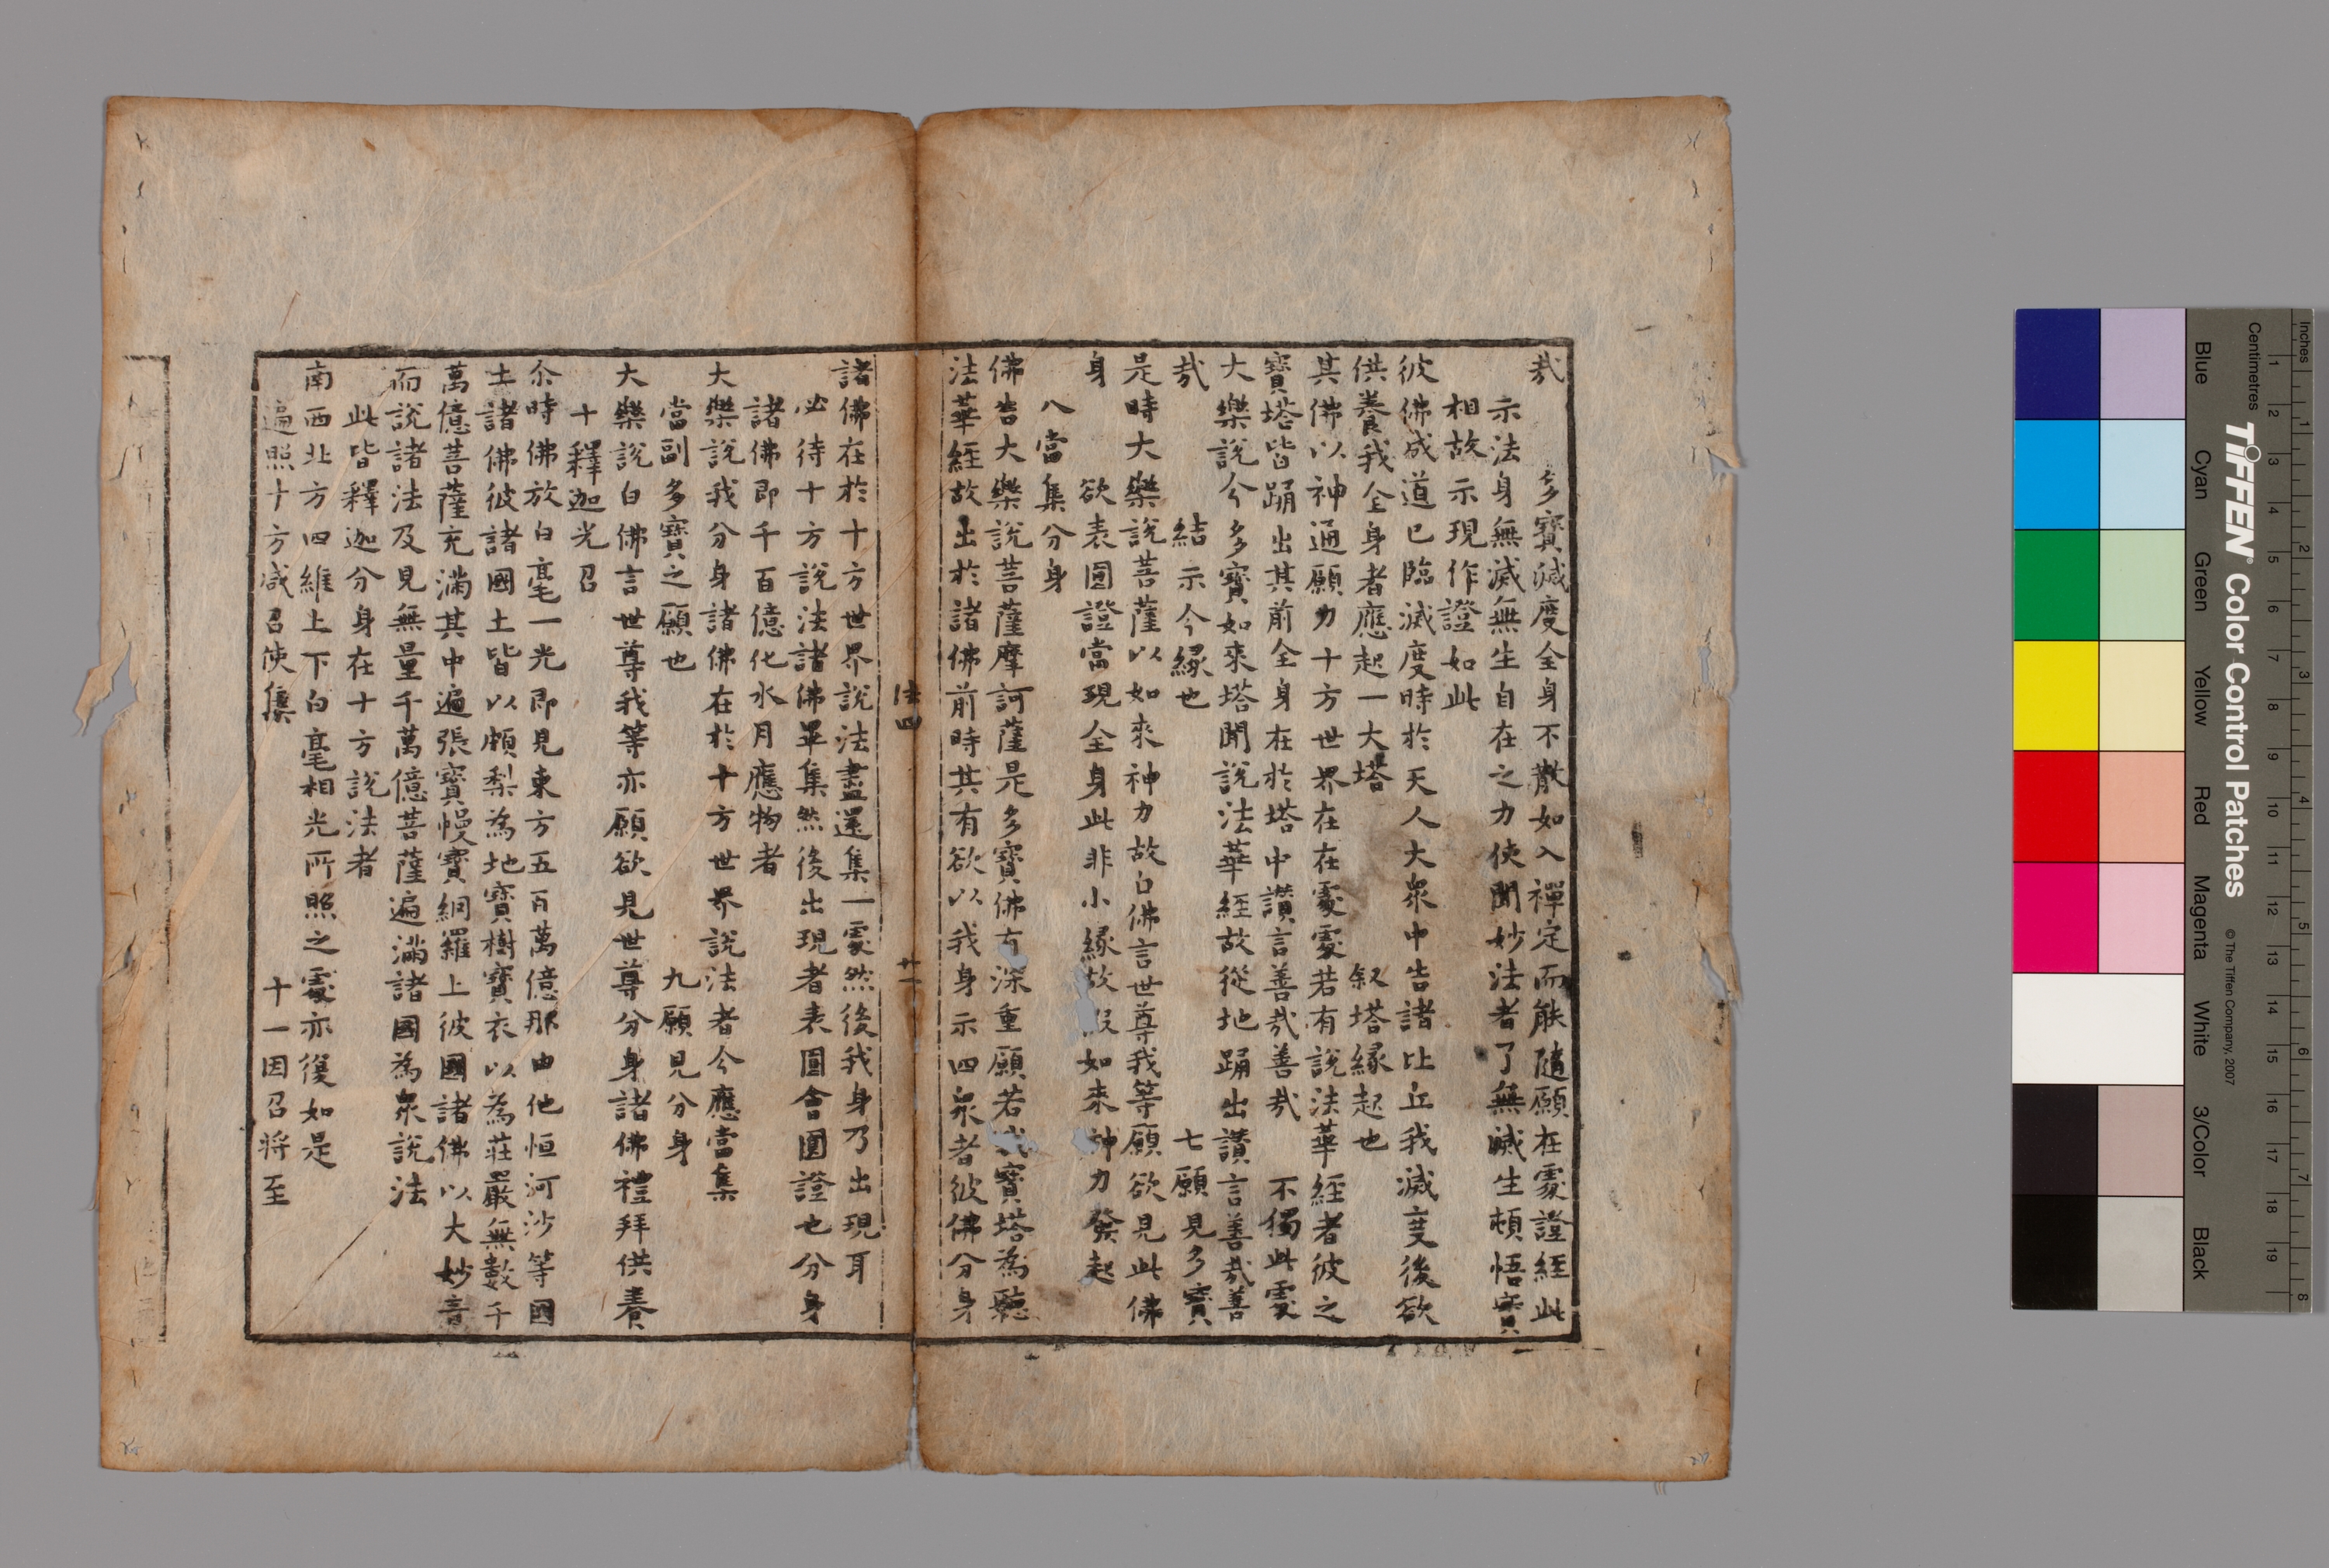 哉　多寶滅度全身不散如入禪定而能隨願在處證經此
示法身無滅無生自在之力使聞妙法者了無滅生頓悟實
相故示現作證如此
彼佛成道已臨滅度時於天人大衆中告諸比丘我滅度後欲
供養我全身者應起一大塔　叙塔緣起也
其佛以神通願力十方世界在在處處若有說法華經者彼之
寶塔皆踊出其前全身在於塔中讚言善哉善哉　不獨此處
大樂說今多寶如來塔聞說法華經故從地踊出讚言善哉善
哉　結示今緣也　七願見多寶
是時大樂說菩薩以如來神力故白佛言世尊我等願欲見此佛
身　欲表圓證當現全身此非小緣故如來神力發起
八當集分身
佛告大樂說菩薩摩訶薩是多寶佛有深重願若我寶塔為聽
法華經故出於諸佛前時其有欲以我身示四衆者彼佛分身
法四　廿一
諸佛在於十方世界說法盡還集一處然後我身乃出現耳
必待十方說法諸佛畢集然後出現者表圓會圓證也分身
諸佛即千百億化水月應物者
大樂說我分身諸佛在於十方世界說法者今應當集
當副多寶之願也　九願見分身
大樂說白佛言世尊我等亦願欲見世尊分身諸佛禮拜供養
十釋迦光召
尒時佛放白毫一光即見東方五百萬億那由他恒河沙等國
土諸佛彼諸國土皆以頗梨為地寶樹寶衣以為莊嚴無數千
萬億菩薩充滿其中遍張寶幔寶網羅上彼國諸佛以大妙音
而說諸法及見無量千萬億菩薩遍滿諸國為衆說法
此皆釋迦分身在十方說法者
南西北方四維上下白毫相光所照之處亦復如是
遍照十方咸召使集　十一因召將至
Inches
Centimetres
TIFFEN® Color Control Patches
© The Tiffen Company, 2007
Blue
Cyan
Green
Yellow
Red
Magenta
White
3/Color
Black
1 2 3 4 5 6 7 8 9 10 11 12 13 14 15 16 17 18 19
1 2 3 4 5 6 7 8